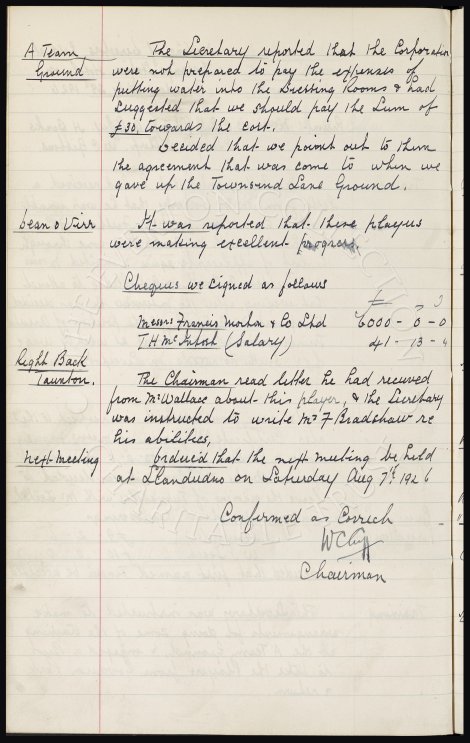 A Team The Secretary reported that the Corporation
Ground were not prepared to pay the expenses of
putting water into the Dressing Rooms & had
suggested that we should pay the Sum of
£30. towards the cost.
Decided that we point out to them
the agreement that was come to when we
gave up the Townsend Lane Ground.
Dean & Virr It was reported that these players
were making excellent progress.
Cheques we signed as follows
£
Messrs Francis Morton & Co Ltd 6000 - 0 - 0
T H McIntosh (Salary) 41 - 13 - 4
Right Back
Taunton. The Chairman read letter he had received
from Mr Wallace about this player, & the Secretary
was instructed to write Mr F Bradshaw re
his abilities.
Next Meeting Ordered that the next meeting be held
at Llandudno on Saturday Aug 7th 1926
Confirmed as Correct
W C Cuff
Chairman